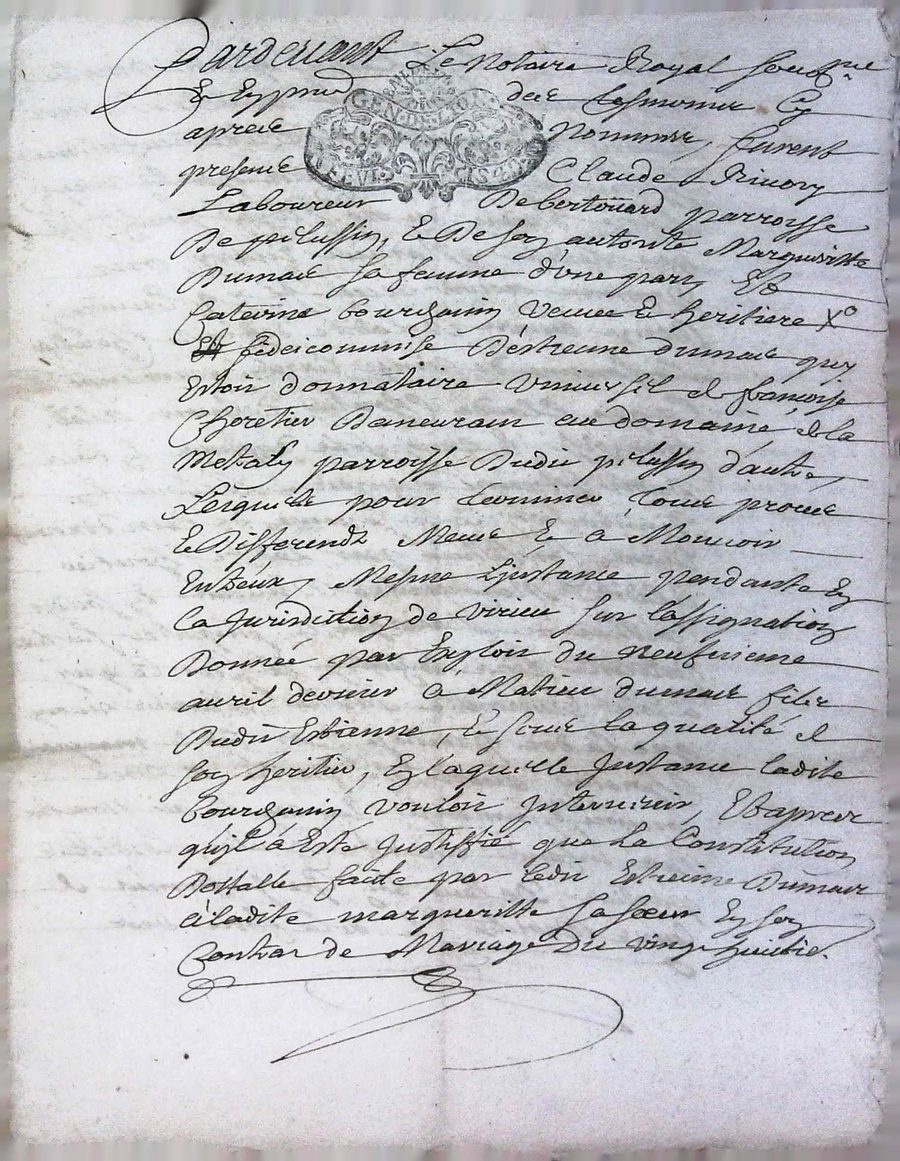 Pardevant Le Notaire Royal
GEN·DE·LION
de Lesmoinie Cy
apres Nommes, furent
presens Claude Rivory
Laboureur De bertouard parroisse
De pelussin, & De son autorite Margueritte
Dumas sa femme d'une part, Et
Caterine bourdonin veuve & heritiere
fideicommise D'estienne dumas quy
Estoit donnataire Univerfel de françoise
au domaine de la
parroisse Dudit pelussin d'autre,
Lesquels pour terminer Tous proces
& Differends Meus & a Mouvoir
Entr'eux, Mesme L'instance pendante En
La Jurisdiction de virieu sur l'assignation
Donnée par Exploit du neufvieme
avril dernier à Matieu dumas fils
Dudit Estienne, & sous la qualité de
son heritier, En laquelle Instance ladite
bourdonin vouloit Intervenir, Et apres
qu'il a Esté Justiffié que La Constitution
Dottalle faite par ledit Estienne Dumas
a ladite margueritte sa sœur En son
Contrat de Mariage Du vingt huitie.